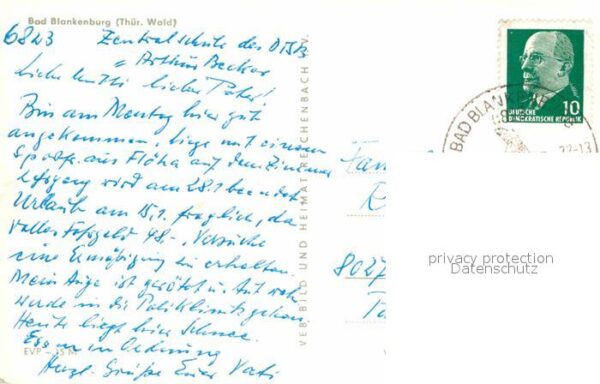 Bad Blankenburg (Thür. Wald)
6823 Zentralschule des DTSB
"Arthur Becker
Liebe Mutti lieber Peter!
Bin am Montag hier gut
angekommen, liege mit einem
Spotfr. aus Flöha auf dem Zimmer
Lehrgang wird am 28.1 beendet
Urlaub am 15.1. fraglich, da
volles Fahrgeld 48,-, Versuche
eine Ermäßigung zu erhalten.
Mein Auge ist gerötet u. tut weh
werde in die Poliklinik gehen
Heute liegt hier Schnee.
Essen in Ordnung
Herzl. Grüße Euer Vati
EVP -,15 M
VEB BILD UND HEIMAT REICHENBACH I. V.
10
DEUTSCHE
DEMOKRATISCHE REPUBLIK
BAD BLANKENBURG
22-13
Fam
8027
privacy protection
Datenschutz